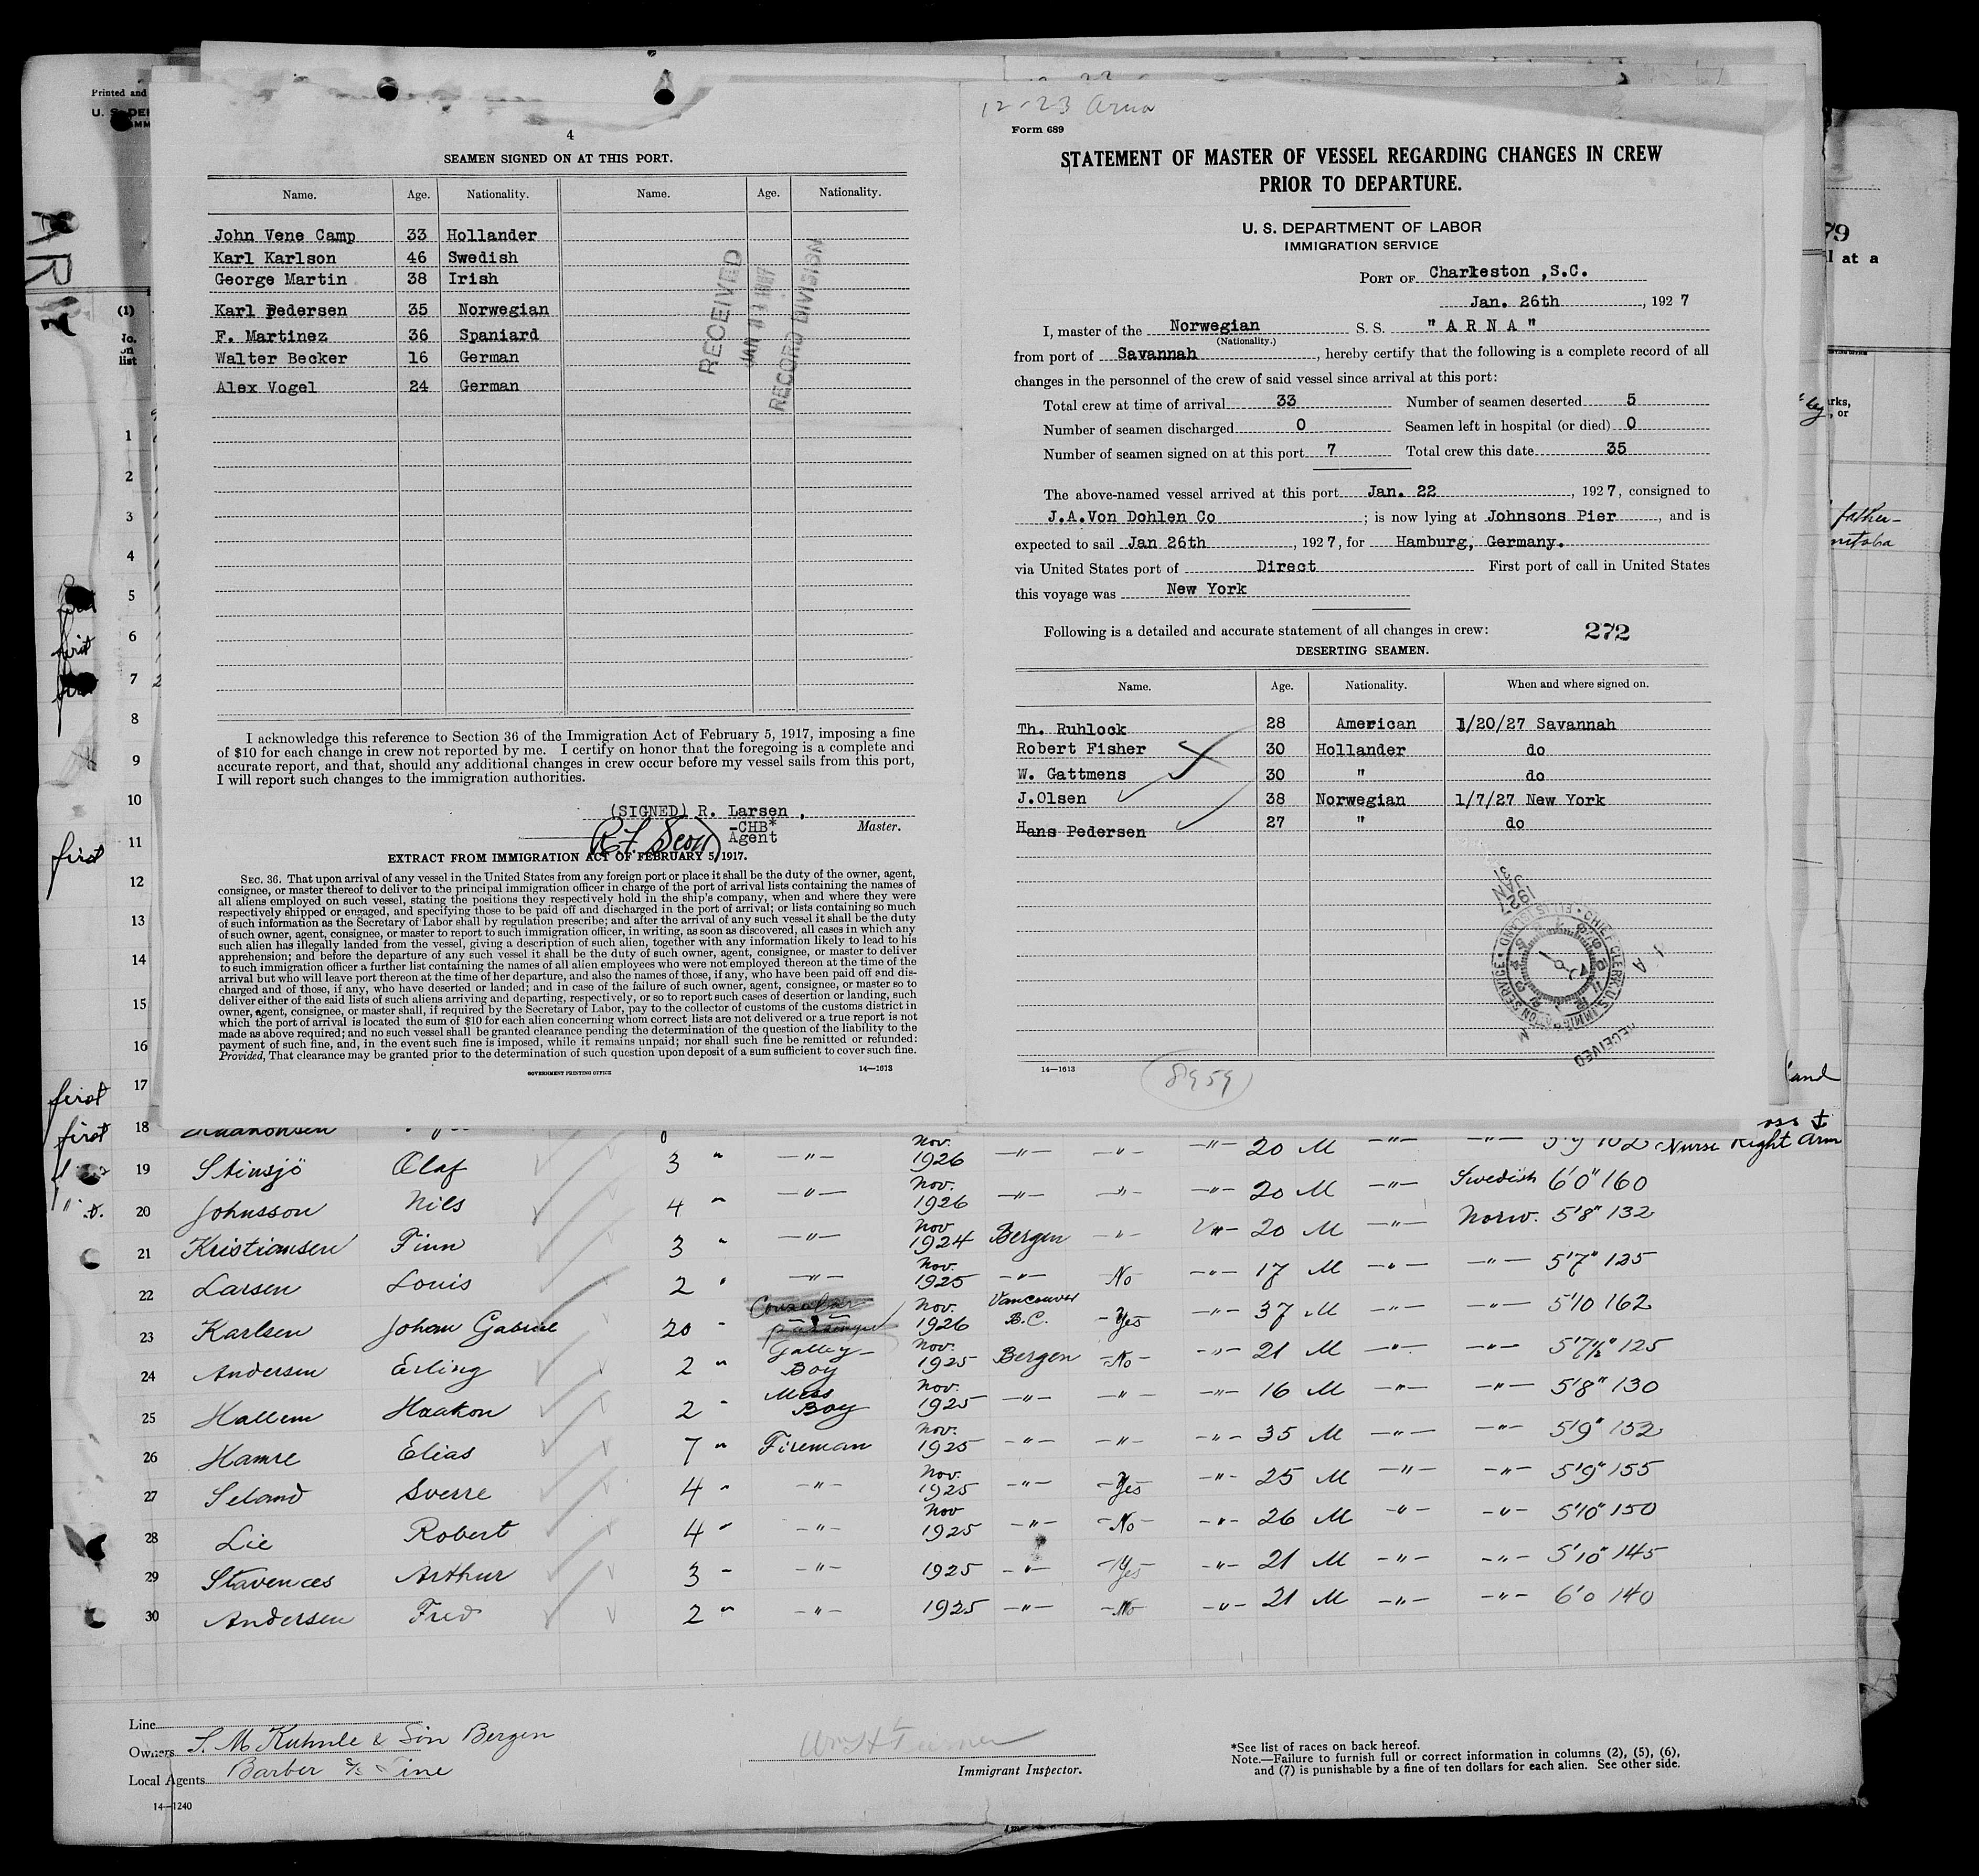 Printed and
U. S. DE
4
SEAMEN SIGNED ON AT THIS PORT.
Name. Age. Nationality. Name. Age. Nationality.
John Vene Camp 33 Hollander
Karl Karlson 46 Swedish
George Martin 38 Irish
Karl Pedersen 35 Norwegian
F. Martinez 36 Spaniard
Walter Becker 16 German
Alex Vogel 24 German
RECEIVED
JAN
RECORD DIVISION
I acknowledge this reference to Section 36 of the Immigration Act of February 5, 1917, imposing a fine
of $10 for each change in crew not reported by me. I certify on honor that the foregoing is a complete and
accurate report, and that, should any additional changes in crew occur before my vessel sails from this port,
I will report such changes to the immigration authorities.
(SIGNED) R. Larsen ,
-CHB* Master.
Agent
EXTRACT FROM IMMIGRATION ACT OF FEBRUARY 5, 1917.
SEC. 36. That upon arrival of any vessel in the United States from any foreign port or place it shall be the duty of the owner, agent,
consignee, or master thereof to deliver to the principal immigration officer in charge of the port of arrival lists containing the names of
all aliens employed on such vessel, stating the positions they respectively hold in the ship's company, when and where they were
respectively shipped or engaged, and specifying those to be paid off and discharged in the port of arrival; or lists containing so much
of such information as the Secretary of Labor shall by regulation prescribe; and after the arrival of any such vessel it shall be the duty
of such owner, agent, consignee, or master to report to such immigration officer, in writing, as soon as discovered, all cases in which any
such alien has illegally landed from the vessel, giving a description of such alien, together with any information likely to lead to his
apprehension; and before the departure of any such vessel it shall be the duty of such owner, agent, consignee, or master to deliver
to such immigration officer a further list containing the names of all alien employees who were not employed thereon at the time of the
arrival but who will leave port thereon at the time of her departure, and also the names of those, if any, who have been paid off and dis-
charged and of those, if any, who have deserted or landed; and in case of the failure of such owner, agent, consignee, or master so to
deliver either of the said lists of such aliens arriving and departing, respectively, or so to report such cases of desertion or landing, such
owner, agent, consignee, or master shall, if required by the Secretary of Labor, pay to the collector of customs of the customs district in
which the port of arrival is located the sum of $10 for each alien concerning whom correct lists are not delivered or a true report is not
made as above required; and no such vessel shall be granted clearance pending the determination of the question of the liability to the
payment of such fine, and, in the event such fine is imposed, while it remains unpaid; nor shall such fine be remitted or refunded:
Provided, That clearance may be granted prior to the determination of such question upon deposit of a sum sufficient to cover such fine.
GOVERNMENT PRINTING OFFICE 14—1613
12-23 Arna
Form 689
STATEMENT OF MASTER OF VESSEL REGARDING CHANGES IN CREW
PRIOR TO DEPARTURE.
U. S. DEPARTMENT OF LABOR
IMMIGRATION SERVICE
PORT OF Charleston ,S.C.
Jan. 26th , 192 7
I, master of the Norwegian S. S. " A R N A "
(Nationality.)
from port of Savannah , hereby certify that the following is a complete record of all
changes in the personnel of the crew of said vessel since arrival at this port:
Total crew at time of arrival 33 Number of seamen deserted 5
Number of seamen discharged 0 Seamen left in hospital (or died) 0
Number of seamen signed on at this port 7 Total crew this date 35
The above-named vessel arrived at this port Jan. 22 , 192 7, consigned to
J.A.Von Dohlen Co ; is now lying at Johnsons Pier , and is
expected to sail Jan 26th , 192 7, for Hamburg, Germany.
via United States port of Direct First port of call in United States
this voyage was New York
Following is a detailed and accurate statement of all changes in crew: 272
DESERTING SEAMEN.
Name. Age. Nationality. When and where signed on.
Th. Ruhlock 28 American 1/20/27 Savannah
Robert Fisher 30 Hollander do
W. Gattmens 30 " do
J.Olsen 38 Norwegian 1/7/27 New York
Hans Pedersen 27 " do
1927 JAN 31
CHIEF CLERK, U.S. IMMIGRATION SERVICE • ELLIS ISLAND
RECEIVED
14—1613
8959
79
l at a
father-
(1)
No.
on
list
1
2
3
4
5 first
6 first
7 first
8
9
10
11 first
12
13
14
15
16
17 first
18 first
Nurse Right Arm
19 Stinsjö Olaf 3 " —"— Nov. 1926 —"— —"— —"— 20 M —"— —"— 5'9 162
20 Johnsson Nils 4 " —"— Nov. 1926 —"— —"— —"— 20 M —"— Swedish 6'0" 160
21 Kristiansen Finn 3 " —"— Nov 1924 Bergen —"— —"— 20 M —"— Norw. 5'8" 132
22 Larsen Louis 2 " —"— Nov. 1925 —"— No —"— 17 M —"— —"— 5'7" 125
23 Karlsen Johan Gabriel 20 " Consular passenger Nov. 1926 Vancouver B.C. Yes —"— 37 M —"— —"— 5'10 162
24 Andersen Erling 2 " Galley Boy Nov. 1925 Bergen No —"— 21 M —"— —"— 5'7½" 125
25 Hallem Haakon 2 " Mess Boy Nov. 1925 —"— —"— —"— 16 M —"— —"— 5'8" 130
26 Hamre Elias 7 " Fireman Nov. 1925 —"— —"— —"— 35 M —"— —"— 5'9" 152
27 Seland Sverre 4 " —"— Nov. 1925 —"— Yes —"— 25 M —"— —"— 5'9" 155
28 Lie Robert 4 " —"— Nov 1925 —"— No —"— 26 M —"— —"— 5'10" 150
29 Stavences Arthur 3 " —"— 1925 —"— Yes —"— 21 M —"— —"— 5'10" 145
30 Andersen Fred 2 " —"— 1925 —"— No —"— 21 M —"— —"— 6'0 140
Line
Owners S. M. Kuhnle & Son Bergen
Local Agents Barber S/S Line
Immigrant Inspector.
*See list of races on back hereof.
Note.—Failure to furnish full or correct information in columns (2), (5), (6),
and (7) is punishable by a fine of ten dollars for each alien. See other side.
14—1240